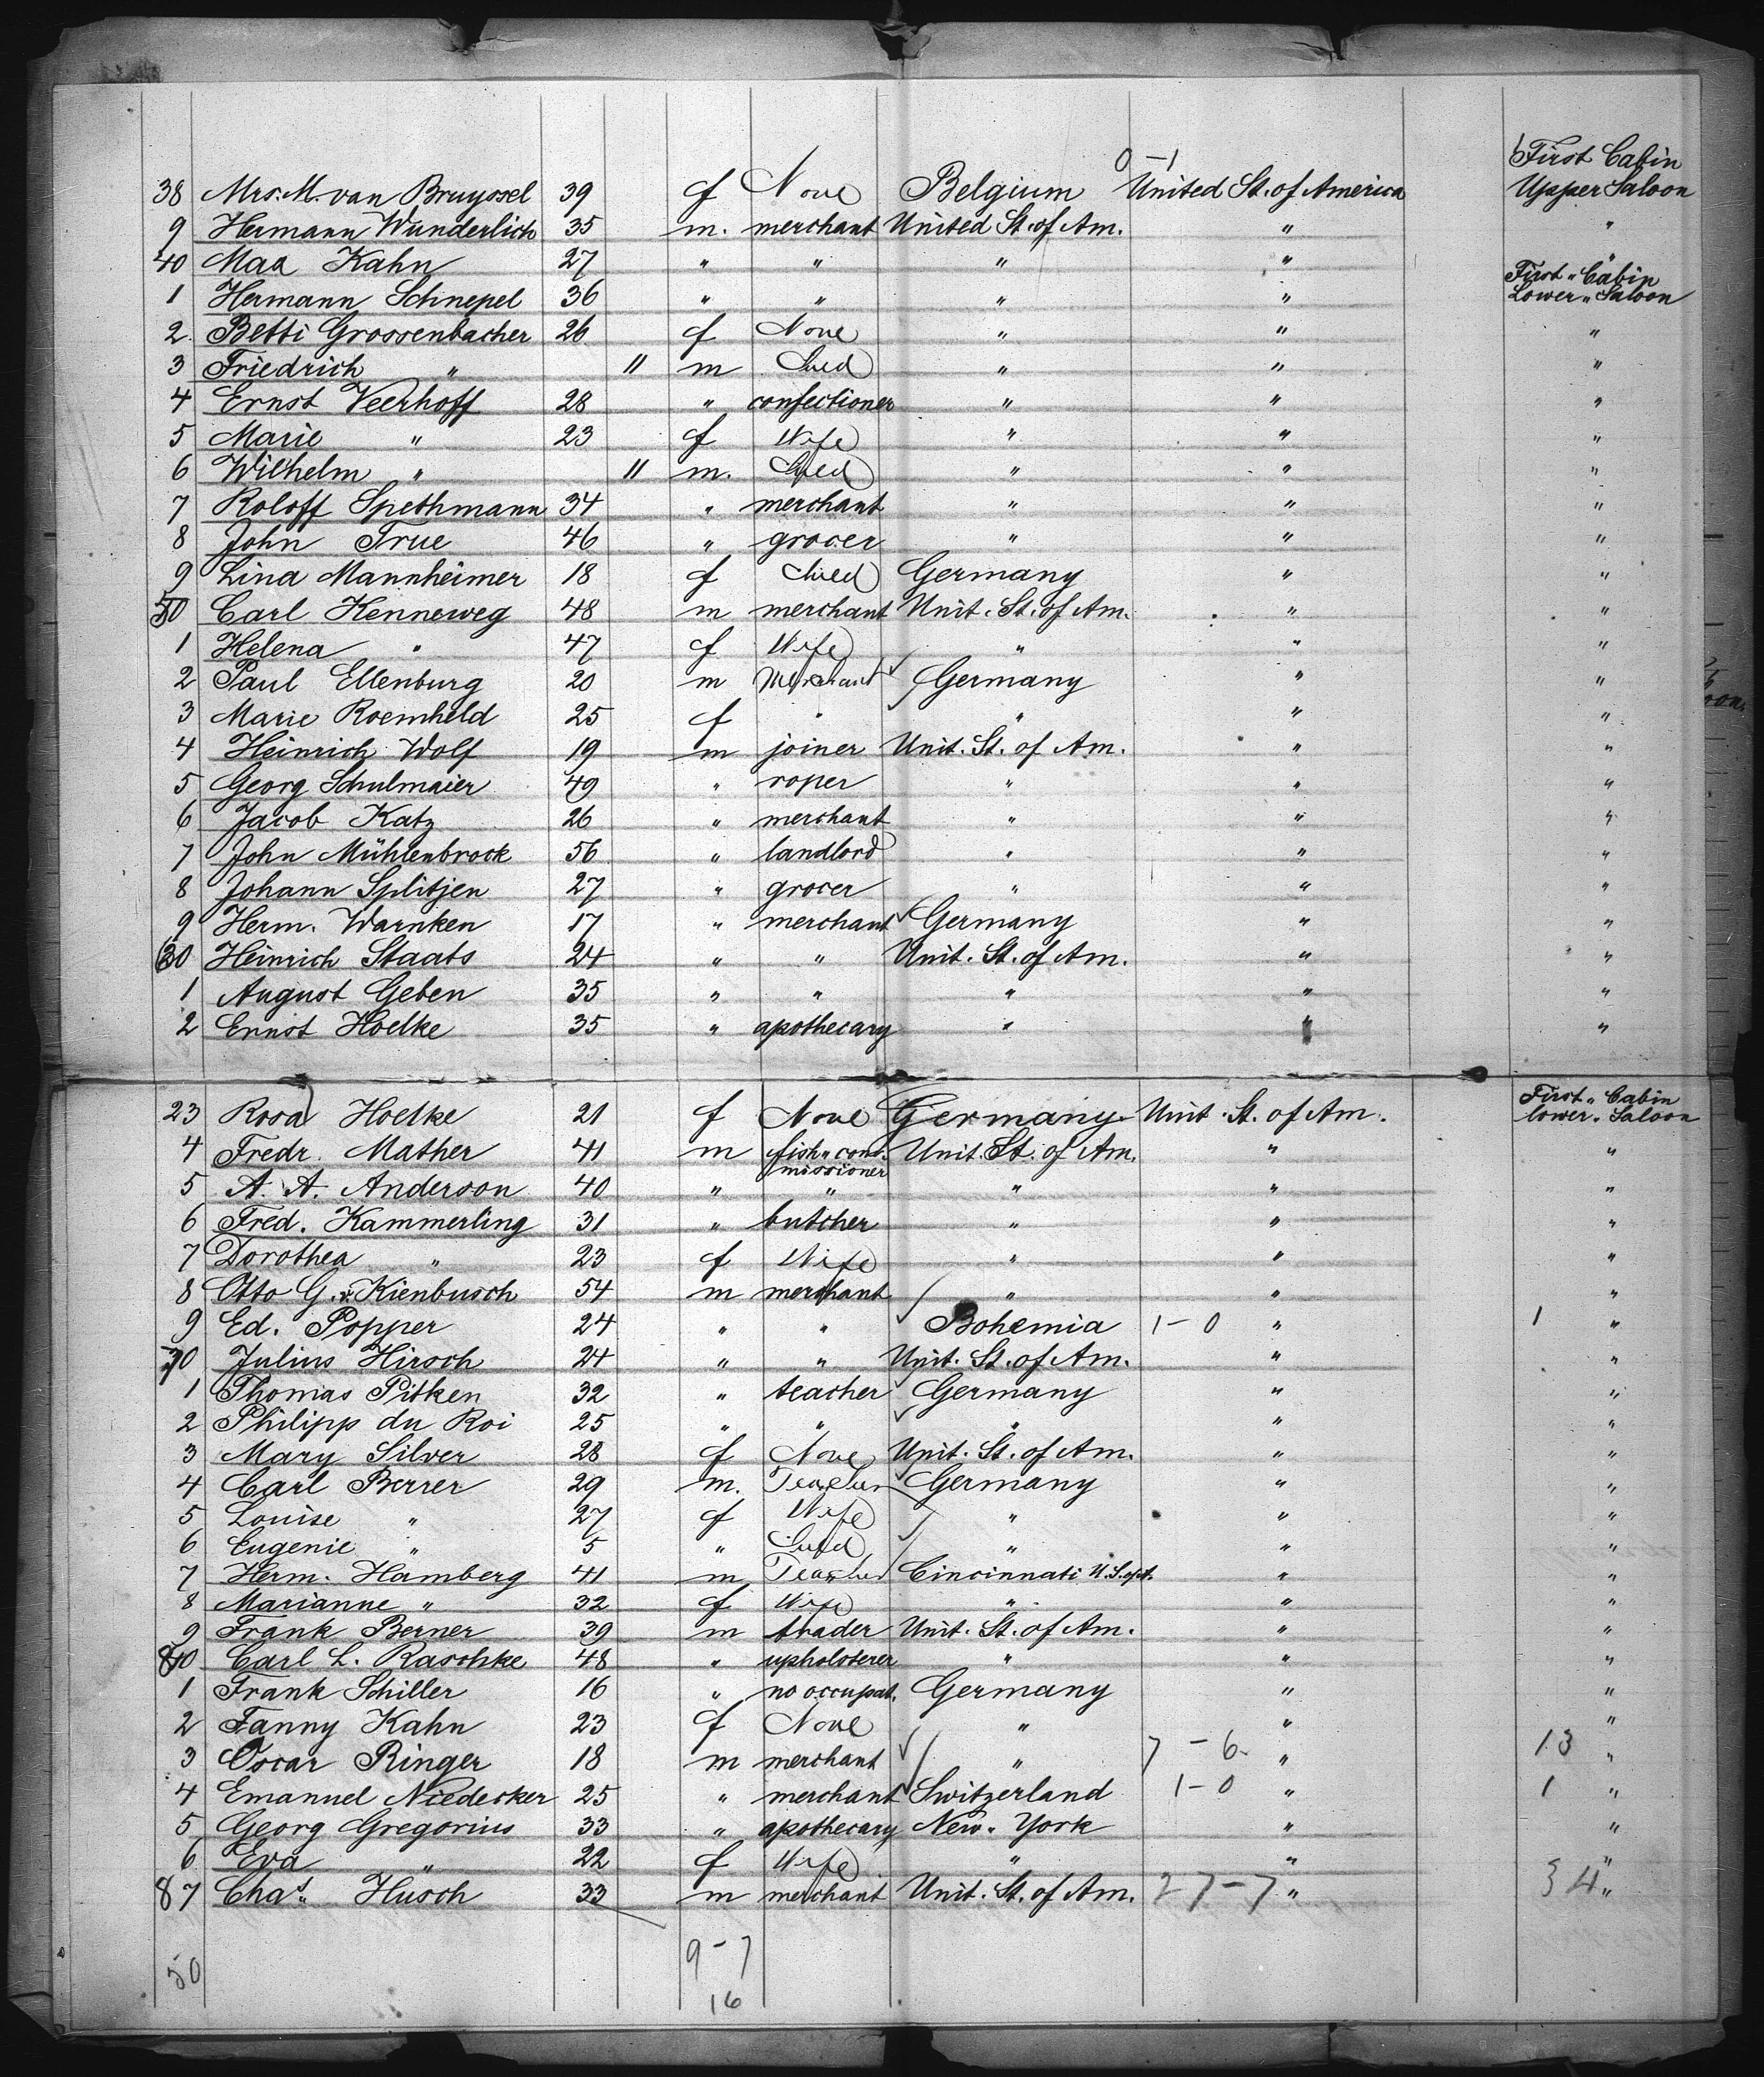 0-1 First Cabin
38 Mrs. M. van Bruyssel 39 f None Belgium United St. of America Upper Saloon
9 Hermann Wunderlich 35 m. merchant United St. of Am. " "
40 Max Kahn 27 " " " " "
First " Cabin
1 Hermann Schnepel 36 " " " " Lower " Saloon
2 Betti Grossenbacher 26 f None " " "
3 Friedrich " 11 m Child " " "
4 Ernst Veerhoff 28 " confectioner " " "
5 Marie " 23 f Wife " " "
6 Wilhelm " 11 m. Child " " "
7 Roloff Spethmann 34 " merchant " " "
8 John True 46 " grocer " " "
9 Lina Mannheimer 18 f Child Germany " "
50 Carl Henneweg 48 m merchant Unit. St. of Am. " "
1 Helena " 47 f Wife " " "
2 Paul Ellenburg 20 m Merchant Germany " "
3 Marie Roemheld 25 f " " " "
4 Heinrich Wolf 19 m joiner Unit. St. of Am. " "
5 Georg Schulmaier 49 " roper " " "
6 Jacob Katz 26 " merchant " " "
7 John Mühlenbrock 56 " landlord " " "
8 Johann Splitjen 27 " grocer " " "
9 Herm. Warnken 17 " merchant Germany " "
60 Heinrich Staats 24 " " Unit. St. of Am. " "
1 August Geben 35 " " " " "
2 Ernst Hoelke 35 " apothecary " " "
First " Cabin
23 Rosa Hoelke 21 f None Germany Unit. St. of Am. lower " Saloon
4 Fredr. Mather 41 m fish " com- Unit. St. of Am. " "
missioner
5 A. A. Anderson 40 " " " " "
6 Fred. Kammerling 31 " butcher " " "
7 Dorothea " 23 f Wife " " "
8 Otto G. v. Kienbusch 54 m merchant " " "
9 Ed. Popper 24 " " Bohemia 1-0 " 1 "
70 Julius Hirsch 24 " " Unit. St. of Am. " "
1 Thomas Pitken 32 " teacher Germany " "
2 Philipp du Roi 25 " " " " "
3 Mary Silver 28 f None Unit. St. of Am. " "
4 Carl Berrer 29 m. Teacher Germany " "
5 Louise " 27 f Wife " " "
6 Eugenie " 5 " Child " " "
7 Herm. Hamberg 41 m Teacher Cincinnati U. S. of A. " "
8 Marianne " 32 f Wife " " "
9 Frank Berner 39 m trader Unit. St. of Am. " "
80 Carl L. Raschke 48 " upholsterer " " "
1 Frank Schiller 16 " no occupat. Germany " "
2 Fanny Kahn 23 f None " " "
3 Oscar Ringer 18 m merchant " 7-6 " 13 "
4 Emanuel Niedecker 25 " merchant Switzerland 1-0 " 1 "
5 Georg Gregorius 33 " apothecary New " York " "
6 Eva " 22 f Wife " " "
87 Chas. Husch 33 m merchant Unit. St. of Am. 27-7 " 34 "
50 9-7
16